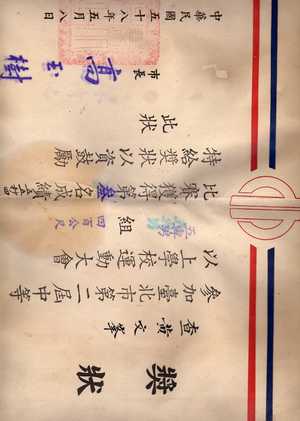 獎狀
查黃文峯
參加臺北市第二屆中等
以上學校運動大會
組四百公尺
比賽獲得第叁名成績
特給獎狀以資鼓勵
此狀
市長高玉樹
中華民國五十八年五月八日